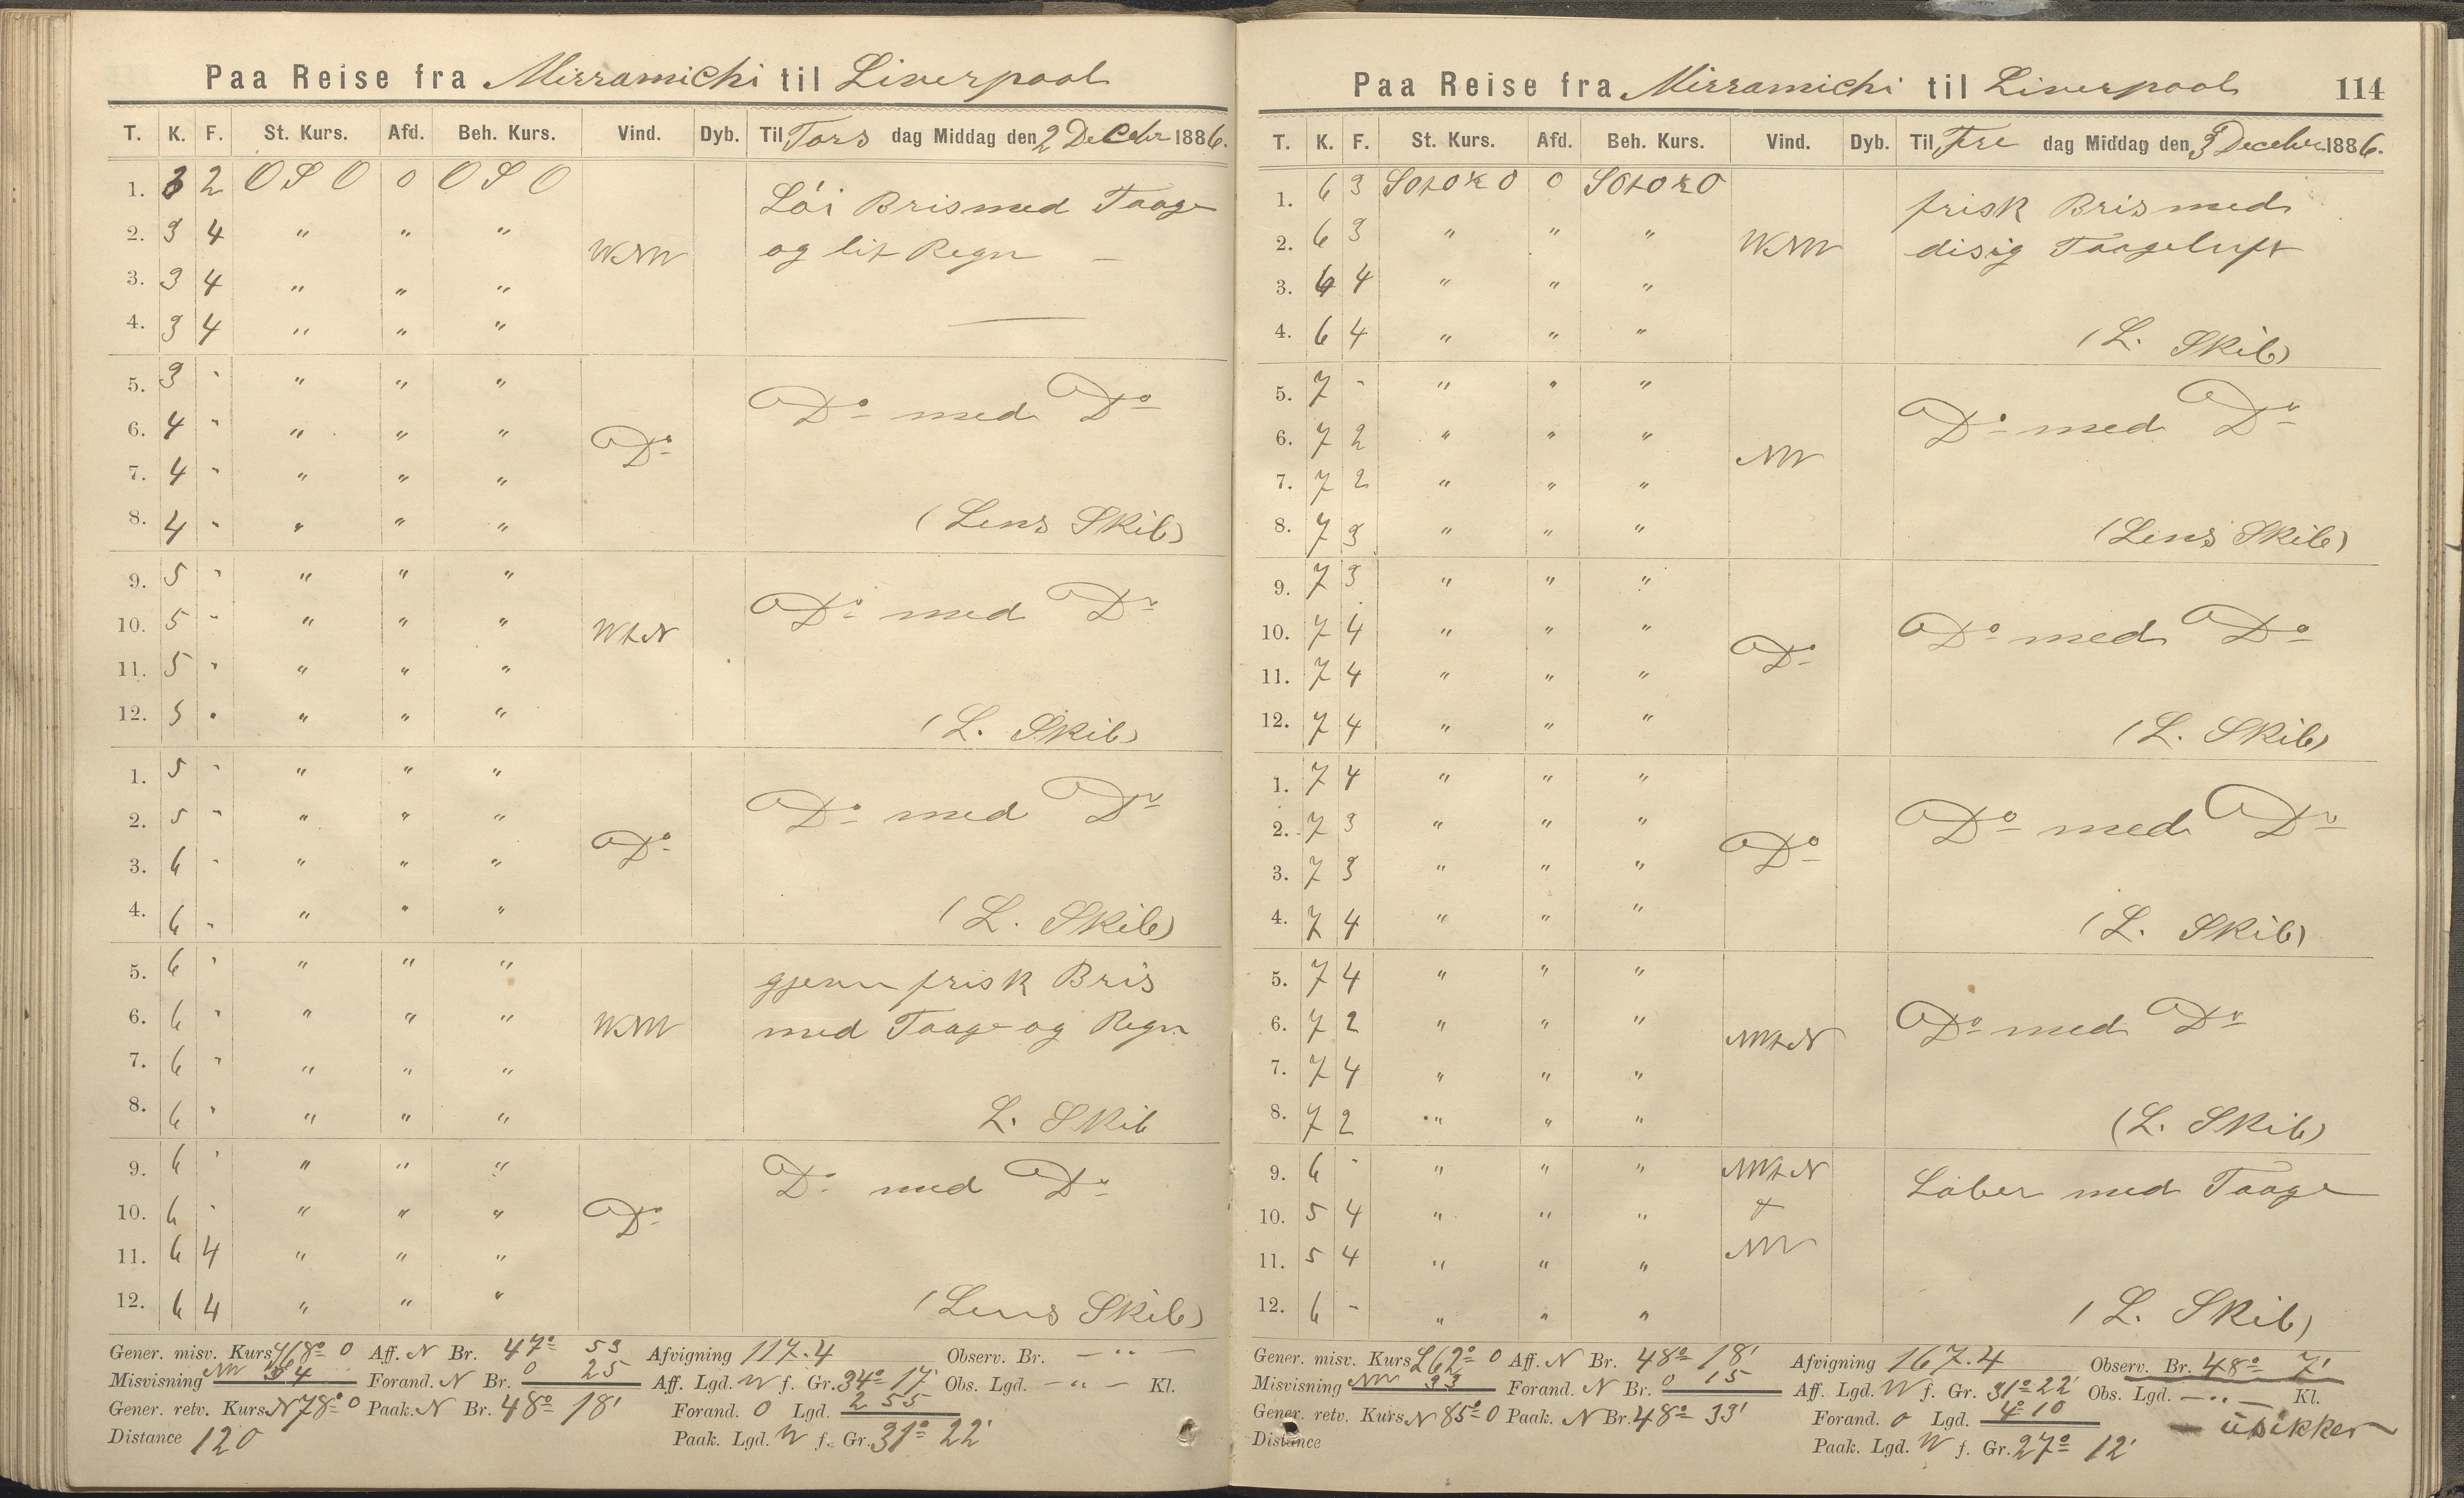 Paa Reise fra Mirramichi til Liverpool
T. K. F. St. Kurs. Afd. Beh. Kurs. Vind. Dyb. Til Tors dag Middag den 2 Decebr 1886.
1. 3 2 O S O o O S O
Löi Bris med Taage
2. 3 4 " " "
WNW og lit Regn —
3. 3 4 " " "
4. 3 4 " " "
5. 3 - " " "
Do med Do
6. 4 - " " "
Do
7. 4 - " " "
8. 4 - " " " (Lens Skib)
9. 5 - " " "
Do med Do
10. 5 - " " "
WtN
11. 5 - " " "
12. 5 - " " " (L. Skib)
1. 5 - " " "
Do med Do
2. 5 - " " "
Do
3. 6 - " " "
4. 6 - " " " (L. Skib)
5. 6 " " " "
gjenn frisk Bris
6. 6 " " " "
WNW med Taage og Regn
7. 6 " " " "
8. 6 " " " " L. Skib
9. 6 " " " "
Do med Do
10. 6 - " " "
Do
11. 6 4 " " "
12. 6 4 " " " (Lens Skib)
Gener. misv. Kurs 18° O Aff. N Br. 47° 53 Afvigning 117.4 Observ. Br. — " —
Misvisning NW 34 Forand. N Br. 0 25 Aff. Lgd. W f. Gr. 34° 17' Obs. Lgd. — " — Kl.
Gener. retv. Kurs N 78° O Paak. N Br. 48° 18' Forand. O Lgd. 2 55
Distance 120 Paak. Lgd. W f. Gr. 31° 22'
Paa Reise fra Mirramichi til Liverpool 114
T. K. F. St. Kurs. Afd. Beh. Kurs. Vind. Dyb. Til Fre dag Middag den 3 Decebr 1886.
1. 6 3 SOtO½O o SOtO½O
frisk Bris med
2. 6 3 " " "
WNW disig Taageluft
3. 6 4 " " "
4. 6 4 " " " (L. Skib)
5. 7 - " " "
Do med Do
6. 7 2 " " "
NW
7. 7 2 " " "
8. 7 3 " " " (Lens Skib)
9. 7 3 " " "
10. 7 4 " " "
Do med Do
Do
11. 7 4 " " "
12. 7 4 " " " (L. Skib)
1. 7 4 " " "
2. 7 3 " " "
Do med Do
Do
3. 7 3 " " "
4. 7 4 " " " (L. Skib)
5. 7 4 " " "
6. 7 2 " " "
NWtN Do med Do
7. 7 4 " " "
8. 7 2 " " " (L. Skib)
9. 6 - " " " NWtN
Laber med Taage
10. 5 4 " " " &
11. 5 4 " " " NW
12. 6 - " " " (L. Skib)
Gener. misv. Kurs S 62° O Aff. N Br. 48° 18' Afvigning 167.4 Observ. Br. 48° 7'
Misvisning NW 33 Forand. N Br. 0 15 Aff. Lgd. W f. Gr. 31° 22' Obs. Lgd. — " — Kl.
Gener. retv. Kurs N 85° O Paak. N Br. 48° 33' Forand. O Lgd. 4° 10 usikker
Distance Paak. Lgd. W f. Gr. 27° 12'